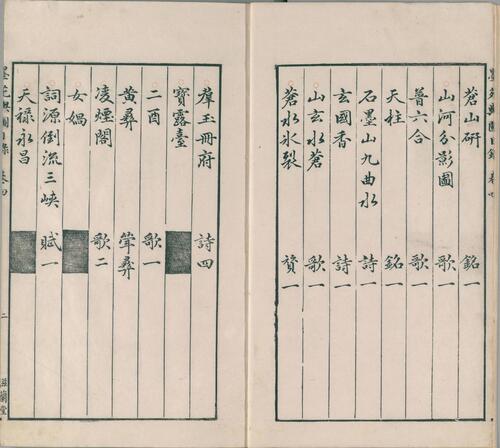 蒼山研 銘一
山河分影圖 歌一
普六合 歌一
天柱 銘一
石墨山九曲水 詩一
玄國香 詩一
山玄水蒼 歌一
蒼水氷裂 贊一
羣玉冊府 詩四
寶露臺
二酉 歌一
黄彞 篆彞
凌煙閣 歌二
女媧
詞源倒流三峽 賦一
天祿永昌
目錄 卷四
二
滋蘭堂